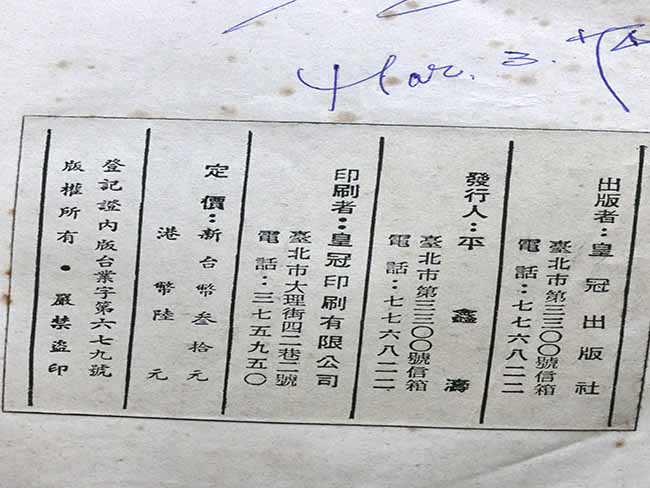 Mar. 3.
出版者：皇冠出版社
臺北市第三三〇〇號信箱
電話：七七六八二二
發行人：平鑫濤
臺北市第三三〇〇號信箱
電話：七七六八二二
印刷者：皇冠印刷有限公司
臺北市大理街四二巷二號
電話：三七五九五〇
定價：新台幣叁拾元
港幣陸元
登記證內版台業字第六七九號
版權所有・嚴禁盜印